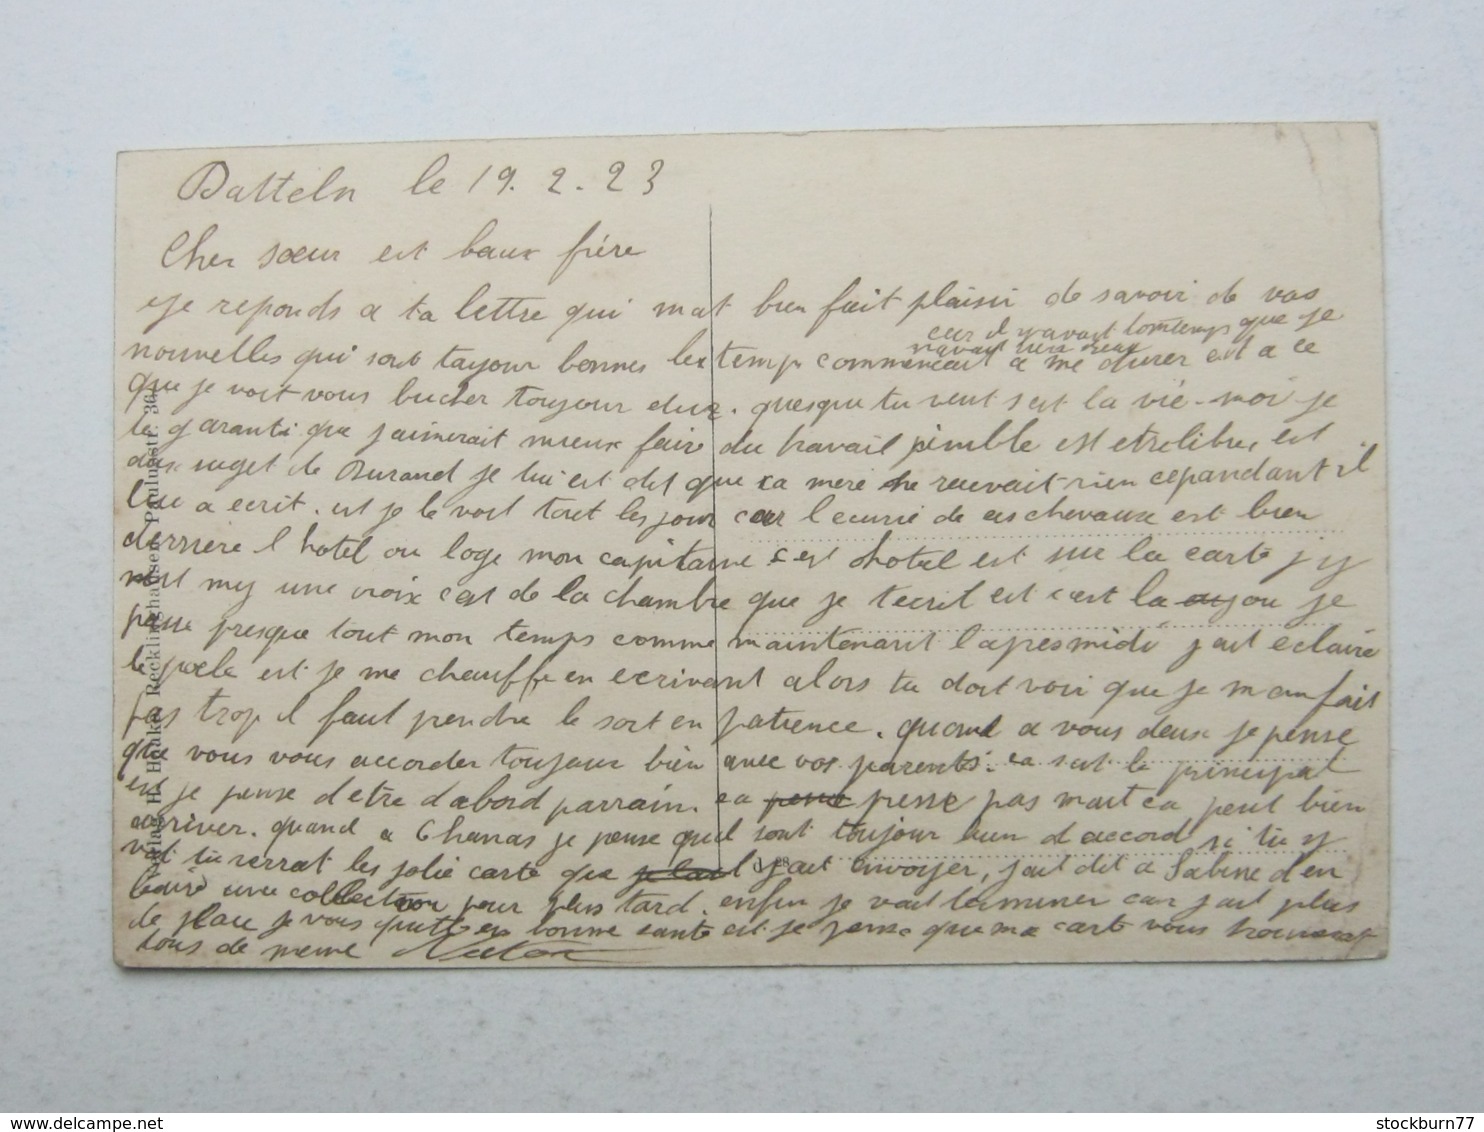 Datteln le 19.2.23
Cher sœur est baux frére
Je reponds a ta lettre qui mat bien fait plaisir de savoir de vos
car il navait lomtemps que je
navait rien reux
nouvelles qui sont toujour bonnes le temp commencait a me durer est a ce
que je voit vous bucher toujour dur. quesque tu veut sest la vié. moi je
te garanti que jaimerait mieux faire du travail pinible est etre libre, est
au suget de Durand je lui est dit que sa mere ne recevait rien cependant il
lui a ecrit. est je le voit tout les jour car lecurie de ces chevaux est bien
derriére l hotel ou loge mon capitaine cest hotel est sur la carte j y
est my une croix cest de la chambre que je tecrit est cest la ou je
passe presque tout mon temps comme maintenant lapresmidi jait eclairé
le poele est je me chauffe en ecrivant alors tu doit voir que je m en fait
pas trop il faut prendre le sort en patience. quand a vous deux je pense
que vous vous accorder toujour bien avec vos parents. ca sest le principal
est je pense detre dabord parrain. ca presse pas mait ca peut bien
arriver. quand a Chanas je pense quil sont toujour bien d accord si tu y
vat tu verrat les jolie carte que jait envoyer, jait dit a Sabine d en
faire une collection pour plus tard. enfin je vait terminer car jait plus
de place je vous quitte en bonne sante est je pense que ma carte vous trouverat
tous de meme
Verlag H. Haake, Recklinghausen, Paulusstr. 36
delcampe.net
stockburn77